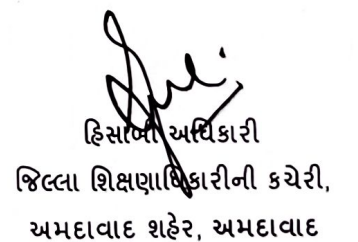 હિસાબી અધિકારી
જિલ્લા શિક્ષણાધિકારીની કચેરી,
અમદાવાદ શહેર, અમદાવાદ